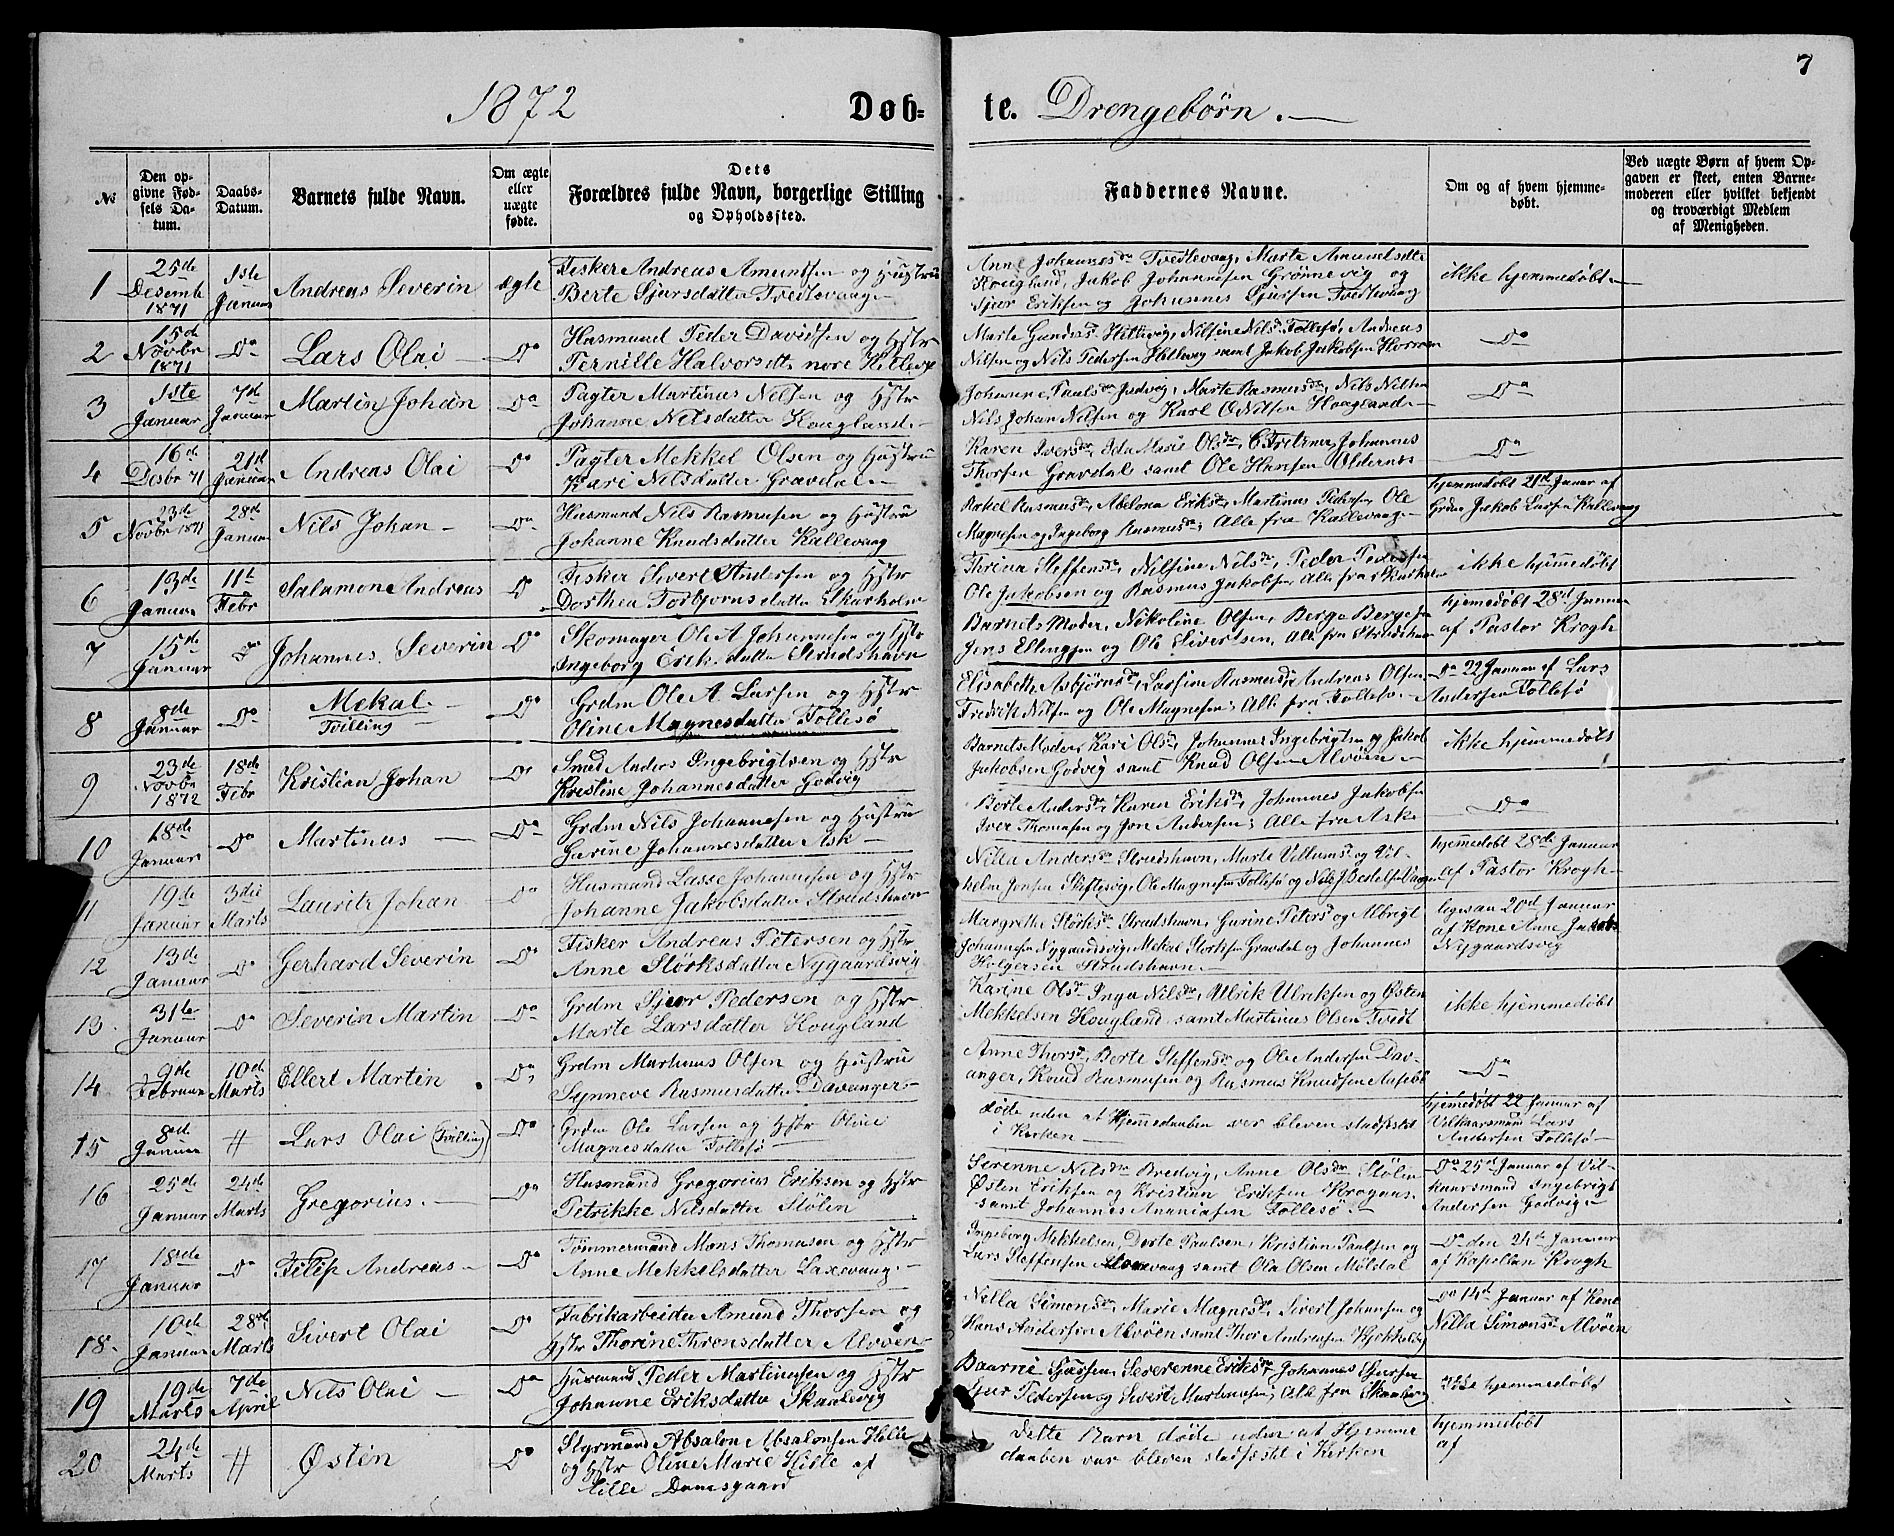 7
1872 Døb- te. Drengebørn.
№
Den opgivne Fødsels Datum.
Daabs-Datum.
Barnets fulde Navn.
Om ægte eller uægte fødte.
Dets Forældres fulde Navn, borgerlige Stilling og Opholdssted.
Faddernes Navne.
Om og af hvem hjemmedøbt.
Ved uægte Børn af hvem Opgaven er skeet, enten Barnemoderen eller hvilket bekjendt og troværdigt Medlem af Menigheden.
1 25de Desemb 1871 1ste Januar Andreas Severin ægte
Fisker Andreas Amundsen og Hustru
Berte Sjursdatter Tvedtevaag
Anne Johannesdr Tvedtevaag, Marte Amundsdtr
Hougland, Jakob Johannesen Grønnevig og
Sjur Eriksen og Johannes Sjursen Tvedtevaag
ikke hjemmedøbt
2 15de Novbr 1871 Do Lars Olai Do
Husmand Peder Davidsen og Hstr
Pernille Halvorsdtr nore Hillevig
Nilsen og Nils Pedersen Hillevig samt Jakob Jakobsen
Do
3 1ste Januar 7d Januar Martin Johan Do
Pagter Martinus Nilsen og Hstr
Johanne Nilsdatter Hougland
Nils Johan Nilsen og Karl O Nilsen Hougland
Do
4 16d Desbr 71 21d Januar Andreas Olai Do
Pagter Mekkel Olsen og Hustru
Kari Nilsdatter Gravdal
Karen Iversdr, Ida Marie Olsdr, C Fritzner, Johannes
Thorsen Gravdal samt Ole Hansen Oldernes
Do
5 23de Novbr 1871 28d Januar Nils Johan Do
Husmand Nils Rasmusen og Hustru
Johanne Knudsdatter Kallevaag
Rakel Rasmusdr, Abelona Eriksdr, Martinus Pedersen, Ole
Magnesen og Ingeborg Rasmusdr, Alle fra Kallevaag
hjemmedøbt 21d Januar af
Grdm Jakob Larsen Kallevaag
6 13de Januar 11t Febr Salamon Andreas Do
Fisker Sivert Andersen og Hstr
Dorthea Torbjørnsdatter Skarholm
Thrina Steffensdr, Nilsine Nilsdr, Peder Pedersen
Ole Jakobsen og Rasmus Jakobsen, Alle fra Skarholm
ikke hjemmedøbt
7 15de Januar Do Johannes Severin Do
Skomager Ole A Johannesen og Hstr
Ingeborg Eriksdatter Strudshavn
Barnets Moder, Nikoline Olsen, Berge Bergesen
Jens Ellingsen og Ole Sivertsen, Alle fra Strudshavn
hjemmedøbt 28d Januar
af Pastor Krogh
8 8de Januar Do Mekal Tvilling Do
Grdm Ole A Larsen og Hstr
Oline Magnesdatter Follesø
Elisabeth Asbjørnsdr, Larsine Rasmusdr, Andreas Olsen
Fredrik Nilsen og Ole Magnesen, Alle fra Follesø
Do 22 Januar af Lars
Andersen Follesø
9 23de Novbr 1872 18de Febr Kristian Johan Do
Smed Anders Ingebrigtsen og Hstr
Kristine Johannesdatter Godvig
Barnets Moder, Kari Olsdr, Johannes Ingebrigtsen og Jakob
Jakobsen Godvig samt Knud Olsen Alvøen
ikke hjemmedøbt
10 18de Januar Do Martinus Do
Grdm Nils Johannesen og Hustru
Gurine Johannesdatter Ask
Berte Andersdr, Karen Eriksdr, Johannes Jakobsen
Iver Thomasen og Jon Andersen, Alle fra Aske
Do
11 19de Januar 3die Marts Lauritz Johan Do
Husmand Lasse Johannesen og Hstr
Johanne Jakobsdatter Strudshavn
Nilla Andersdr Strudshavn, Marte Villumsdr og Vil-
helm Jensen Skiftesvig, Ole Magnesen Follesø og Nils J
hjemmedøbt 28de Januar
af Pastor Krogh
12 13de Januar Do Gerhard Severin Do
Fisker Andreas Petersen og Hstr
Anne Størksdatter Nygaardsvig
Margrethe Størksdr Strudshavn, Gurine Petersd og Albrigt
Johannesen Nygaardsvig, Mekal Størksen Gravdal og Johannes
Holgersen Strudshavn
ligesaa 20d Januar
af Kone Anne Jakobs
Nygaardsvig
13. 31te Januar Do Severin Martin Do
Grdm Sjur Pedersen og Hstr
Marte Larsdatter Hougland
Karine Olsdr, Inga Nilsdr, Ulrik Ulriksen og Østen
Mekkelsen Hougland samt Martinus Olsen Tvedt
ikke hjemmedøbt
14 9de Februar 10de Marts Ellert Martin Do
Grdm Martinus Olsen og Hustru
Synneve Rasmusdatter Davanger
Anne Thorsdr, Berte Steffensdr og Ole Andersen Dav-
anger, Knud Rasmusen og Rasmus Knudsen
Do
15 8de Januar # Lars Olai (Tvilling) Do
Grdm Ole Larsen og Hstr Oline
Magnesdatter Follesø
døde uden at Hjemmedaaben var bleven stadfæstet
i Kirken
hjemmedøbt 22 Januar af
Vilkaarsmand Lars
Andersen Follesø
16 25de Januar 24de Marts Gregorius. Do
Husmand Gregorius Eriksen og Hstr
Petrikke Nilsdatter Stølen
Serenne Nilsdr Bredvig, Anne Olsdr Stølen
Østen Eriksen og Kristian Eriksen Krognes
samt Johannes Ananiasen Follesø
Do 25d Januar af Vil-
kaarsmand Ingebrigt
Andersen Godvig
17 18de Januar Do Filip Andreas Do
Tømmermand Mons Thomasen og Hstr
Anne Mekkelsdatter Laxevaag
Ingeborg Mekkelsen, Dorte Paulsen, Kristian Paulsen og
Lars Steffensen Laxevaag samt Ole Olsen Møldal
Do den 24de Januar
af Kapellan Krogh
18. 10de Januar 28de Marts Sivert Olai Do
Fabrikarbeider Amund Thorsen og
Hstr Thorine Thronsdatter Alvøen
Nilla Simonsdr, Marie Magnesdr, Sivert Johansen og
Hans Andersen Alvøen samt Thor Andreasen
Do 14d Januar af Kone
Nilla Simonsdr Alvøen
19 19de Marts 7de April Nils Olai Do
Husmand Peder Martinusen og Hstr
Johanne Eriksdatter Skaalevig
Sjursen, Severenne Eriksdr, Johannes Sjursen
Sjur Pedersen og Sivert Martinusen, Alle fra Skaalevig
ikke hjemmedøbt
20 24de Marts # Østen Do
Styrmand Absalon Absalonsen Hille
og Hstr Oline Marie Hille af
Lille Damsgaard
Dette Barn døde uden at Hjemme
daaben var bleven stadfæstet i Kirken
hjemmedøbt
af